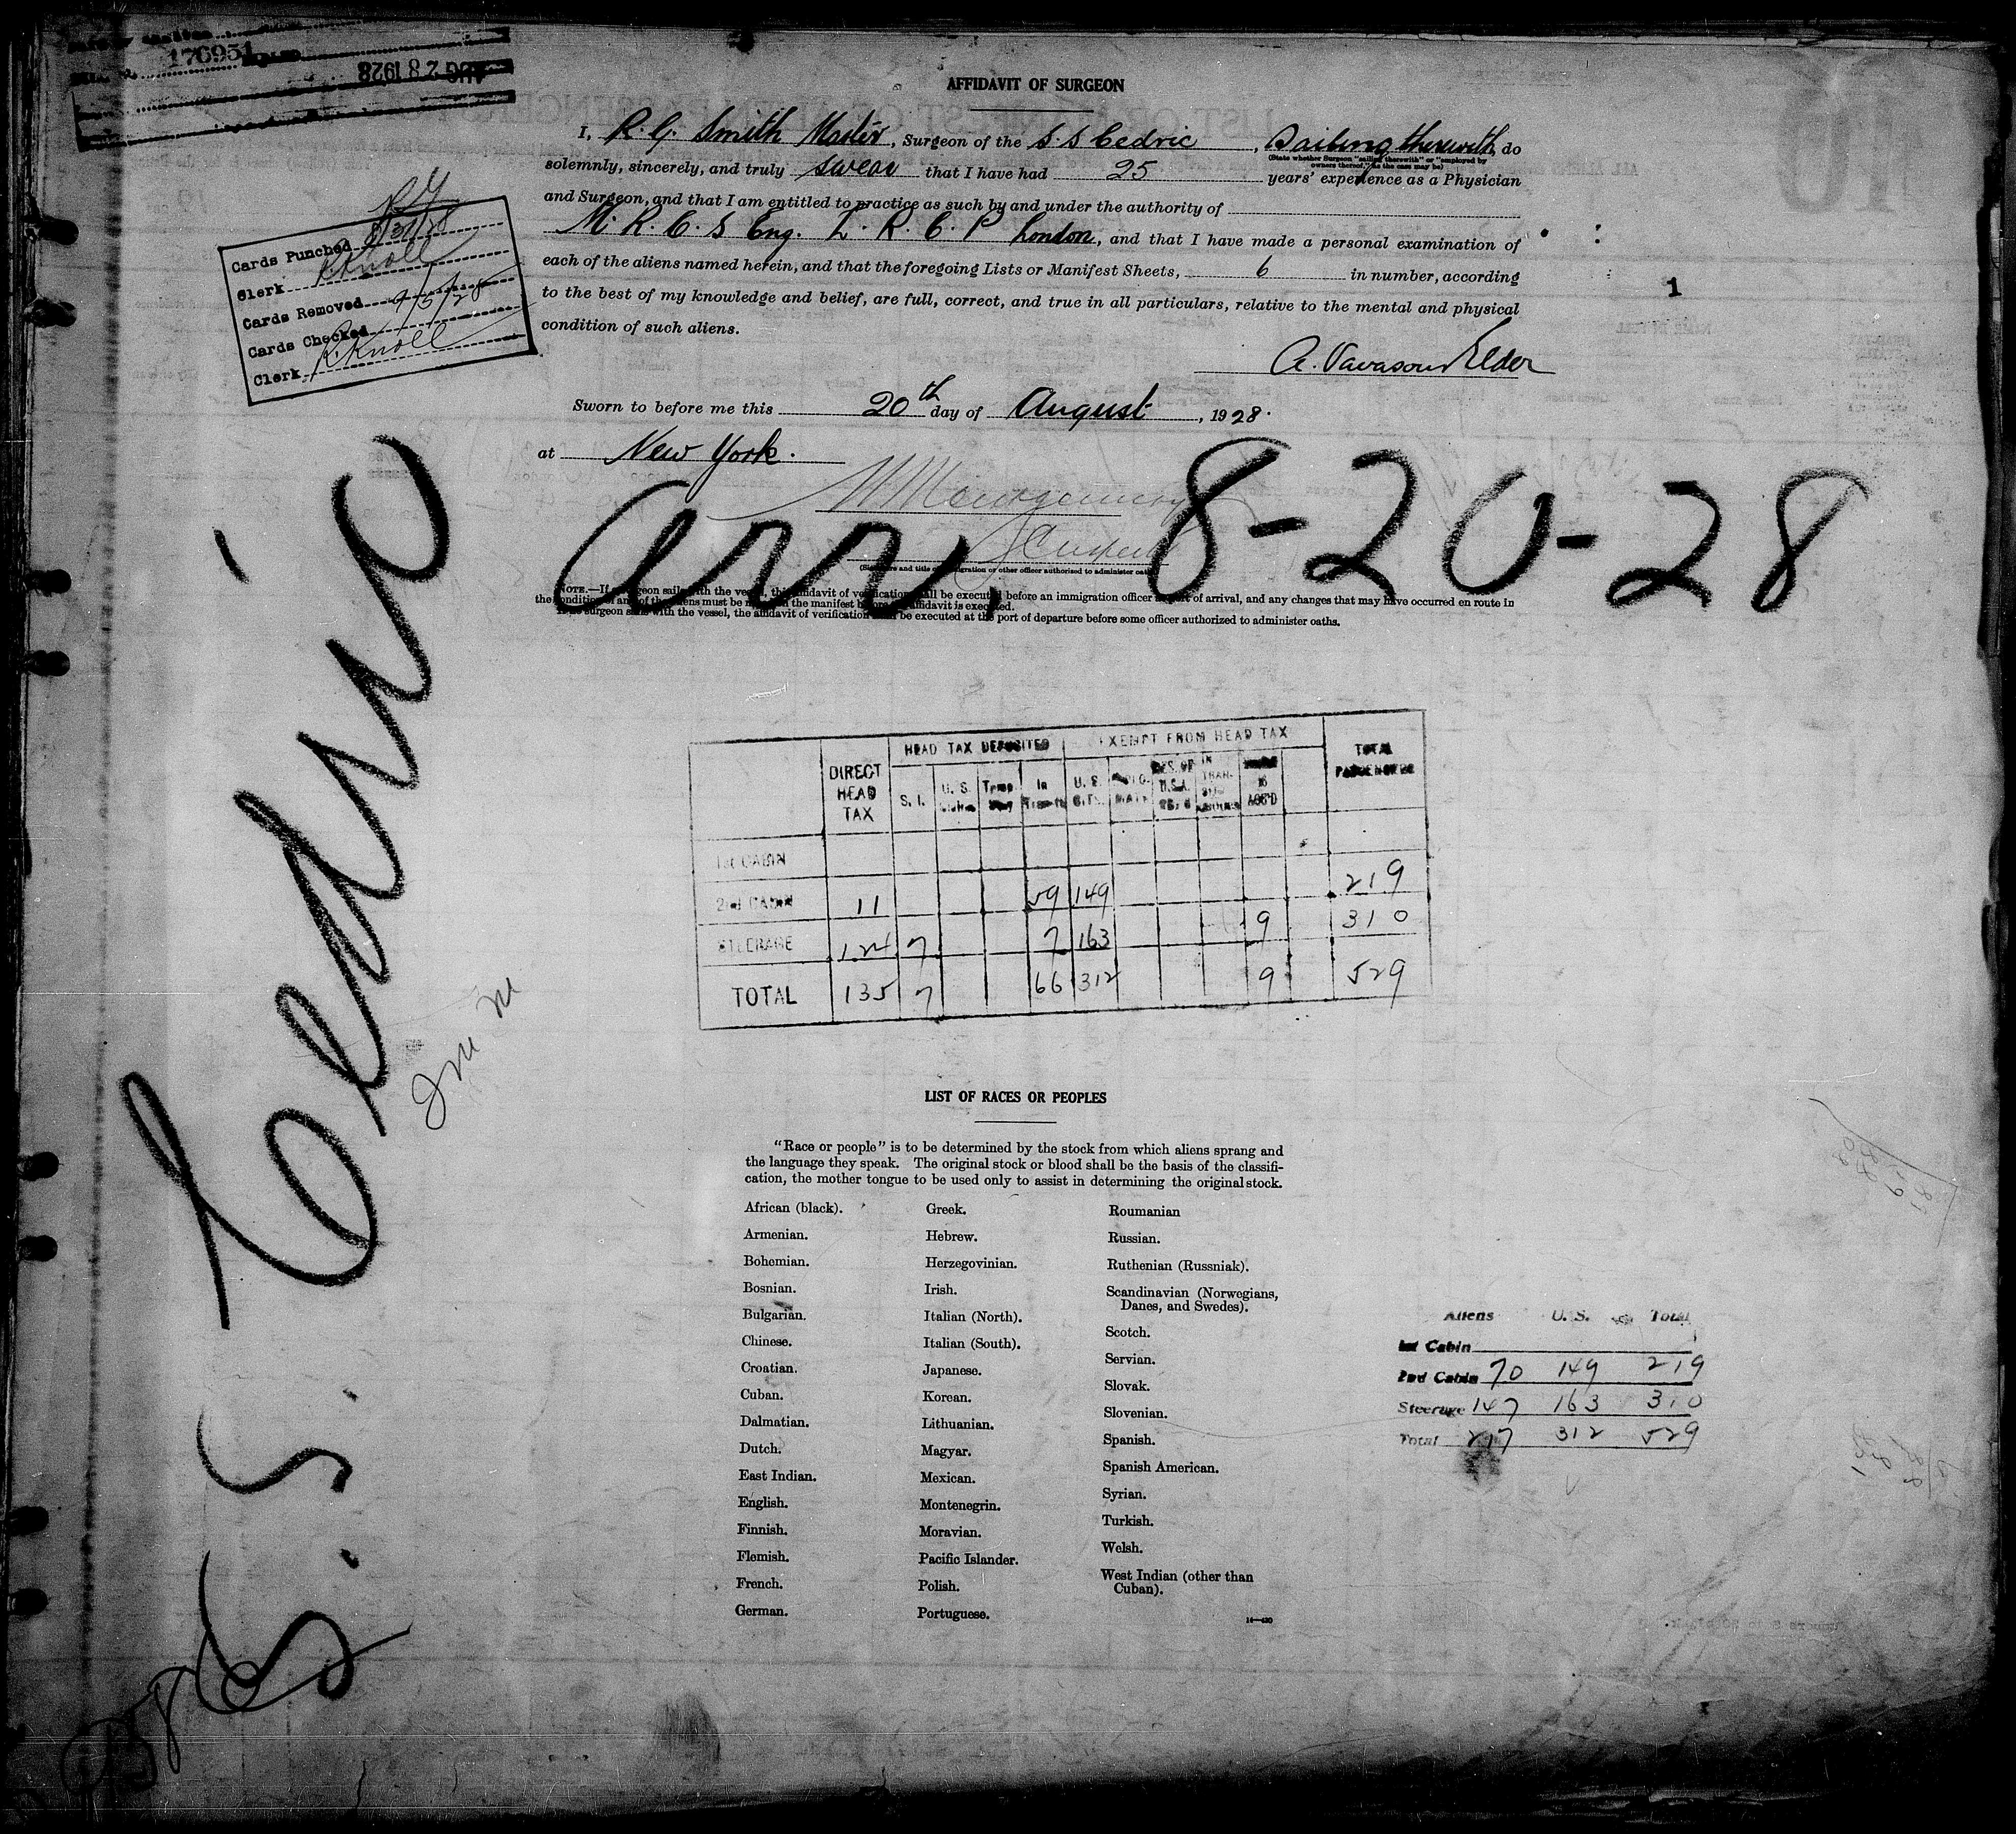 176951
AUG 28 1928
AFFIDAVIT OF SURGEON
I, R. G. Smith Master, Surgeon of the S.S Cedric, Sailing therewith, do
(State whether Surgeon "sailing therewith" or "employed by
owners thereof," as the case may be)
solemnly, sincerely, and truly swear that I have had 25 years' experience as a Physician
and Surgeon, and that I am entitled to practice as such by and under the authority of
M. R. C. S Eng. L. R. C. P London, and that I have made a personal examination of
each of the aliens named herein, and that the foregoing Lists or Manifest Sheets, 6 in number, according
to the best of my knowledge and belief, are full, correct, and true in all particulars, relative to the mental and physical
condition of such aliens.
A. Vavasour Elder
Sworn to before me this 20th day of August, 1928.
at New York.
Cards Punched 8/31/28
Clerk R. Knoll
Cards Removed 9/5/28
Cards Checked
Clerk R. Knoll
1
arr, 8-20-28
(Signature and title of immigration or other officer authorized to administer oaths
NOTE.—If surgeon sails with the vessel, this affidavit of verification shall be executed before an immigration officer at port of arrival, and any changes that may have occurred en route in
the condition of any of the aliens must be noted on the manifest before affidavit is executed.
surgeon sails with the vessel, the affidavit of verification shall be executed at the port of departure before some officer authorized to administer oaths.
S. S. Cedric
DIRECT HEAD TAX HEAD TAX DEPOSITED EXEMPT FROM HEAD TAX TOTAL PASSENGERS
S. I. U. S. Temp. Stay In Transit U. S. CIT. DIPLOMATS
1st CABIN
2nd CABIN 11 59 149 219
STEERAGE 124 7 7 163 9 310
TOTAL 135 7 66 312 9 529
LIST OF RACES OR PEOPLES
"Race or people" is to be determined by the stock from which aliens sprang and
the language they speak. The original stock or blood shall be the basis of the classifi-
cation, the mother tongue to be used only to assist in determining the original stock.
African (black).
Armenian.
Bohemian.
Bosnian.
Bulgarian.
Chinese.
Croatian.
Cuban.
Dalmatian.
Dutch.
East Indian.
English.
Finnish.
Flemish.
French.
German.
Greek.
Hebrew.
Herzegovinian.
Irish.
Italian (North).
Italian (South).
Japanese.
Korean.
Lithuanian.
Magyar.
Mexican.
Montenegrin.
Moravian.
Pacific Islander.
Polish.
Portuguese.
Roumanian
Russian.
Ruthenian (Russniak).
Scandinavian (Norwegians,
Danes, and Swedes).
Scotch.
Servian.
Slovak.
Slovenian.
Spanish.
Spanish American.
Syrian.
Turkish.
Welsh.
West Indian (other than
Cuban).
Aliens U. S. Total
1st Cabin
2nd Cabin 70 149 219
Steerage 147 163 310
Total 217 312 529